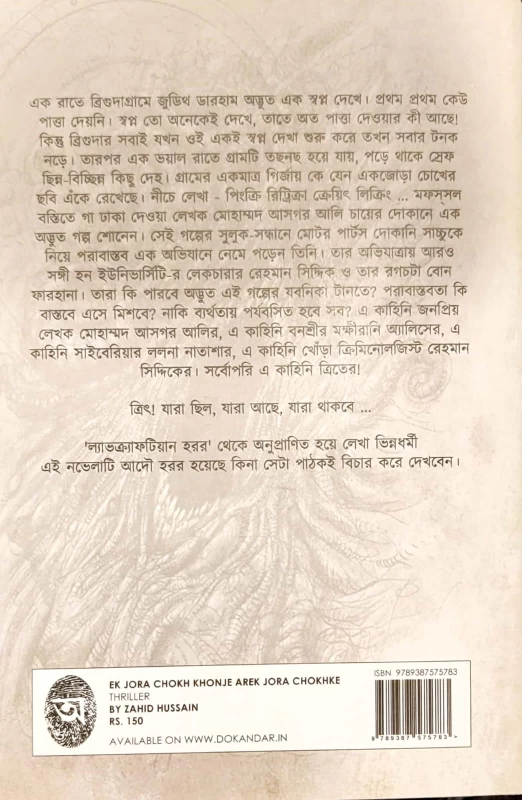 এক রাতে ব্রিগুদাগ্রামে জুডিথ ডারহাম অদ্ভুত এক স্বপ্ন দেখে। প্রথম প্রথম কেউ
পাত্তা দেয়নি। স্বপ্ন তো অনেকেই দেখে, তাতে অত পাত্তা দেওয়ার কী আছে!
কিন্তু ব্রিগুদার সবাই যখন ওই একই স্বপ্ন দেখা শুরু করে তখন সবার টনক
নড়ে। তারপর এক ভয়াল রাতে গ্রামটি তছনছ হয়ে যায়, পড়ে থাকে স্রেফ
ছিন্ন-বিচ্ছিন্ন কিছু দেহ। গ্রামের একমাত্র গির্জায় কে যেন একজোড়া চোখের
ছবি এঁকে রেখেছে। নীচে লেখা - পিংক্রি রিপ্রিক্রা ক্রেয়িৎ লিক্রিং ... মফস্সল
বস্তিতে গা ঢাকা দেওয়া লেখক মোহাম্মদ আসগর আলি চায়ের দোকানে এক
অদ্ভুত গল্প শোনেন। সেই গল্পের সুলুক-সন্ধানে মোটর পার্টস দোকানি সাচ্চুকে
নিয়ে পরাবাস্তব এক অভিযানে নেমে পড়েন তিনি। তার অভিযাত্রায় আরও
সঙ্গী হন ইউনিভার্সিটি-র লেকচারার রেহমান সিদ্দিক ও তার রগচটা বোন
ফারহানা। তারা কি পারবে অদ্ভুত এই গল্পের যবনিকা টানতে? পরাবাস্তবতা কি
বাস্তবে এসে মিশবে? নাকি ব্যর্থতায় পর্যবসিত হবে সব? এ কাহিনি জনপ্রিয়
লেখক মোহাম্মদ আসগর আলির, এ কাহিনি বনশ্রীর মক্ষীরানি অ্যালিসের, এ
কাহিনি সাইবেরিয়ার ললনা নাতাশার, এ কাহিনি খোঁড়া ক্রিমিনোলজিস্ট রেহমান
সিদ্দিকের। সর্বোপরি এ কাহিনি ত্রিতের!
ত্রিৎ! যারা ছিল, যারা আছে, যারা থাকবে ...
'ল্যাভক্র্যাফটিয়ান হরর' থেকে অনুপ্রাণিত হয়ে লেখা ভিন্নধর্মী
এই নভেলাটি আদৌ হরর হয়েছে কিনা সেটা পাঠকই বিচার করে দেখবেন।
অ
EK JORA CHOKH KHONJE AREK JORA CHOKHKE
THRILLER
BY ZAHID HUSSAIN
RS. 150
AVAILABLE ON WWW.DOKANDAR.IN
ISBN 9789387575783
9 789387 575783 >